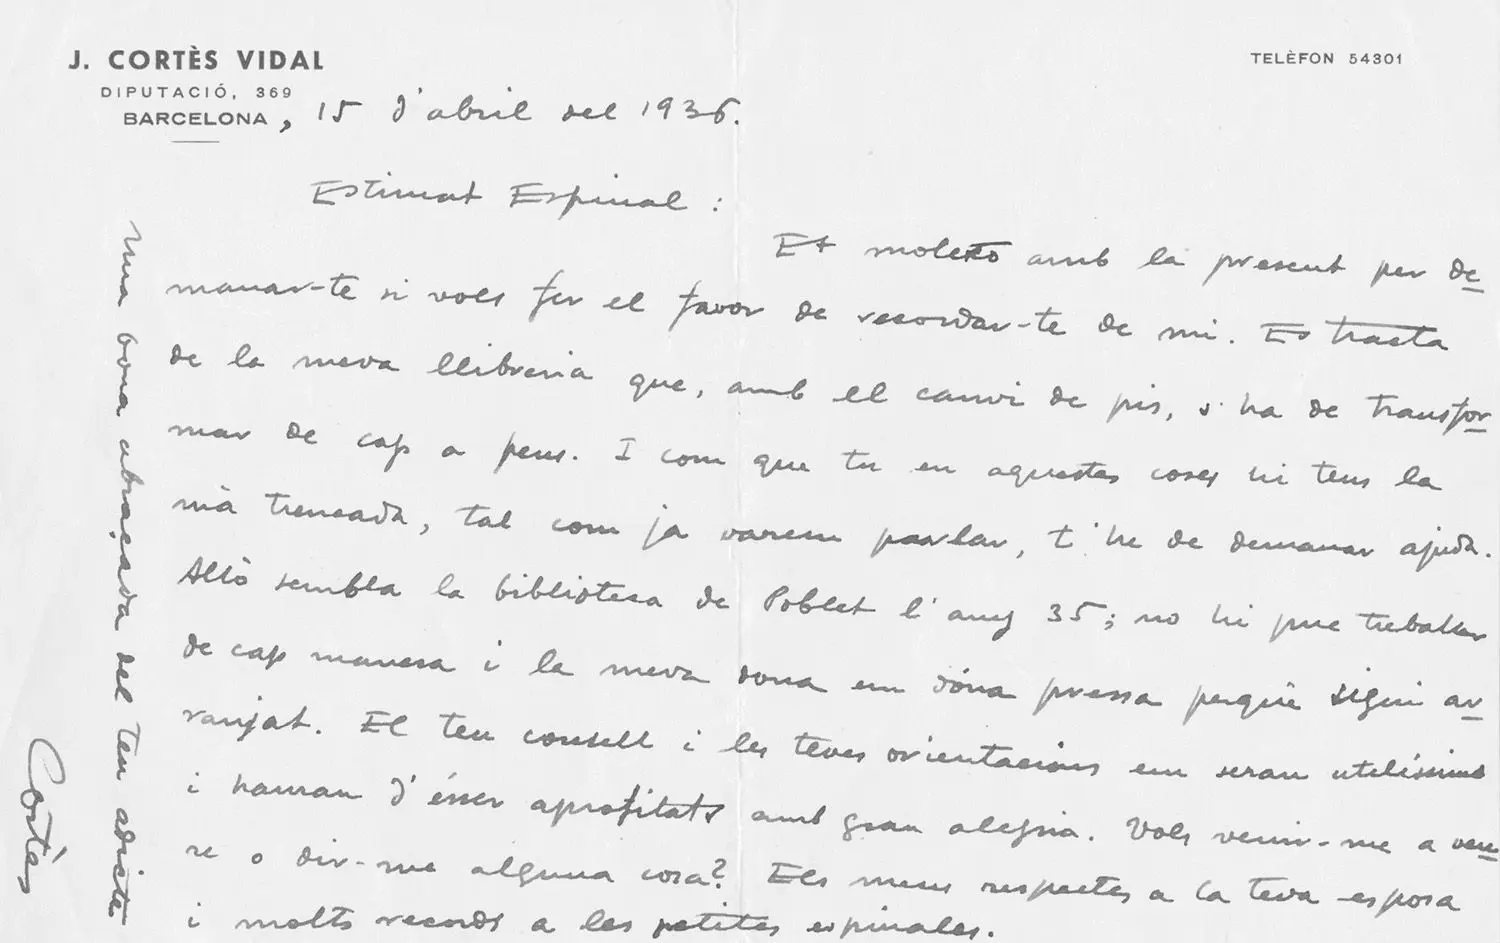 J. CORTÈS VIDAL
DIPUTACIÓ, 369
BARCELONA
TELÈFON 54301
, 15 d'abril del 1936.
Estimat Espinal :
Et molesto amb la present per de
manar-te si vols fer el favor de recordar-te de mi. Es tracta
de la meva llibreria que, amb el canvi de pis, s'ha de transfor
mar de cap a peus. I com que tu en aquestes coses hi tens la
mà trencada, tal com ja varem parlar, t'he de demanar ajuda.
Allò sembla la biblioteca de Poblet l'any 35; no hi puc treballar
de cap manera i la meva dona em dóna pressa perquè sigui ar
ranjat. El teu consell i les teves orientacions em seran utilíssims
i hauran d'ésser aprofitats amb gran alegria. Vols venir-me a veu
re o dir-me alguna cosa? Els meus respectes a la teva esposa
i molts records a les petites espinales.
Una bona abraçada del teu adicte
Cortès